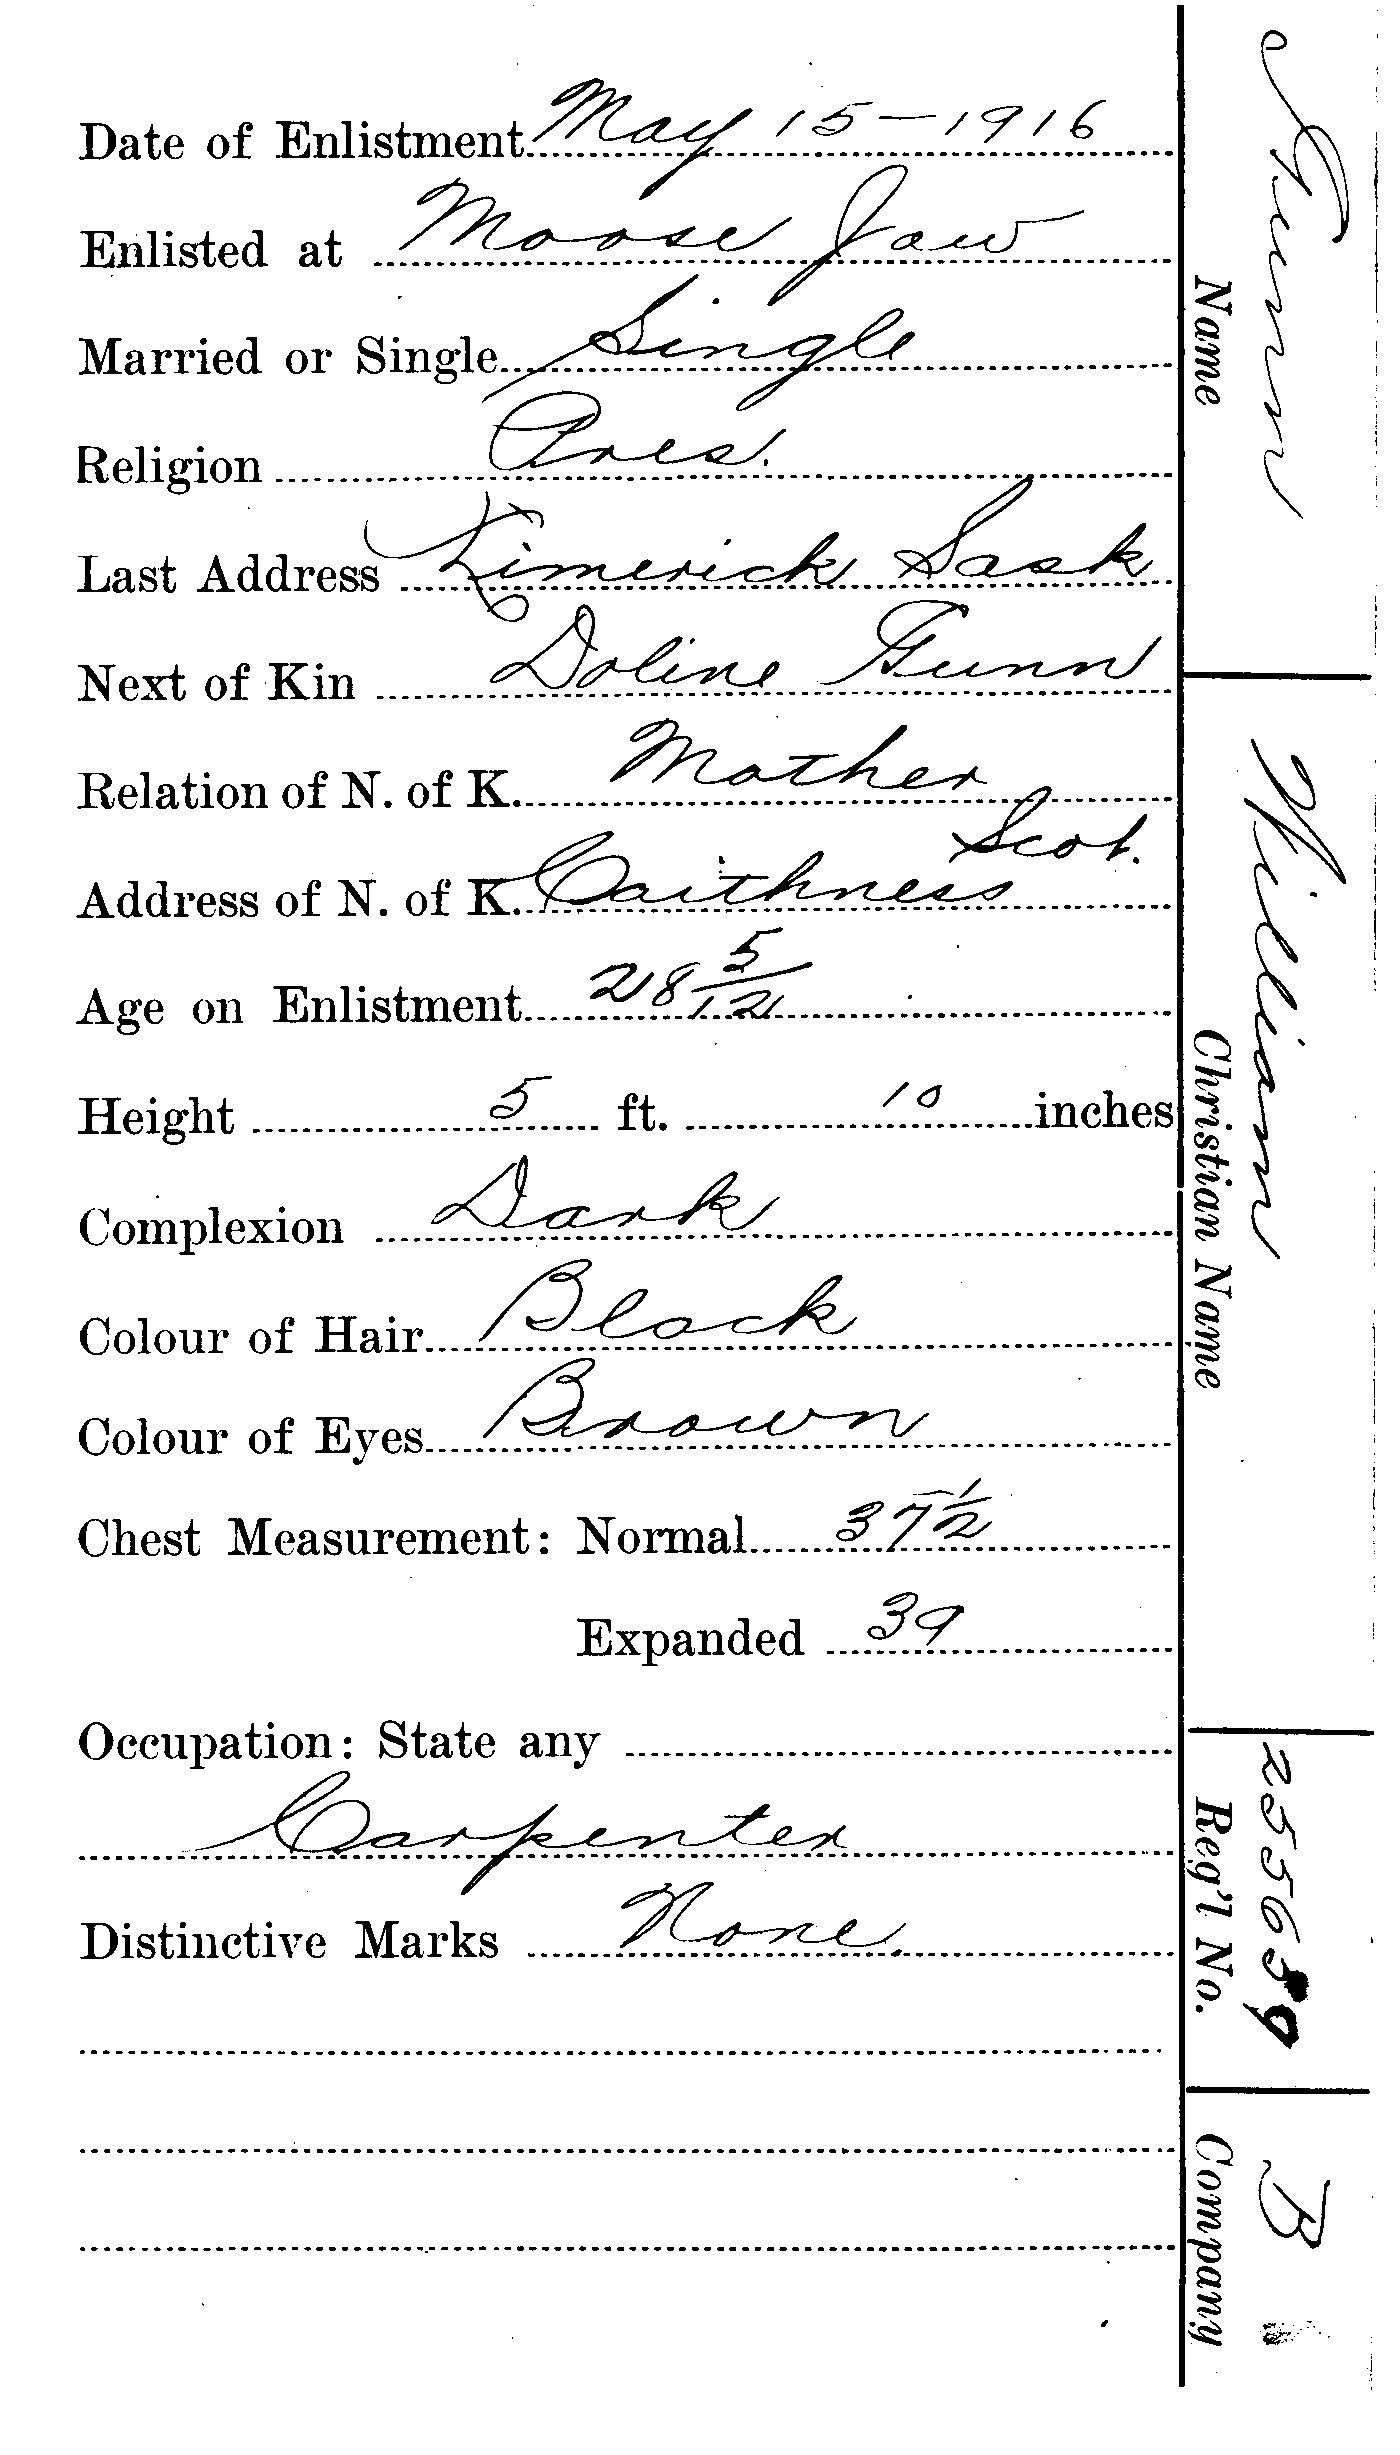 Date of Enlistment May 15-1916
Enlisted at Moose Jaw
Married or Single Single
Religion Pres.
Last Address Limerick Sask
Next of Kin Doline Gunn
Relation of N. of K. Mother
Scot.
Address of N. of K. Caithness
Age on Enlistment 28 5/12
Height 5 ft. 10 inches
Complexion Dark
Colour of Hair Black
Colour of Eyes Brown
Chest Measurement: Normal 37 1/2
Expanded 39
Occupation: State any
Carpenter
Distinctive Marks None.
Gunn
Name
William
Christian Name
Reg'l No.
B
Company